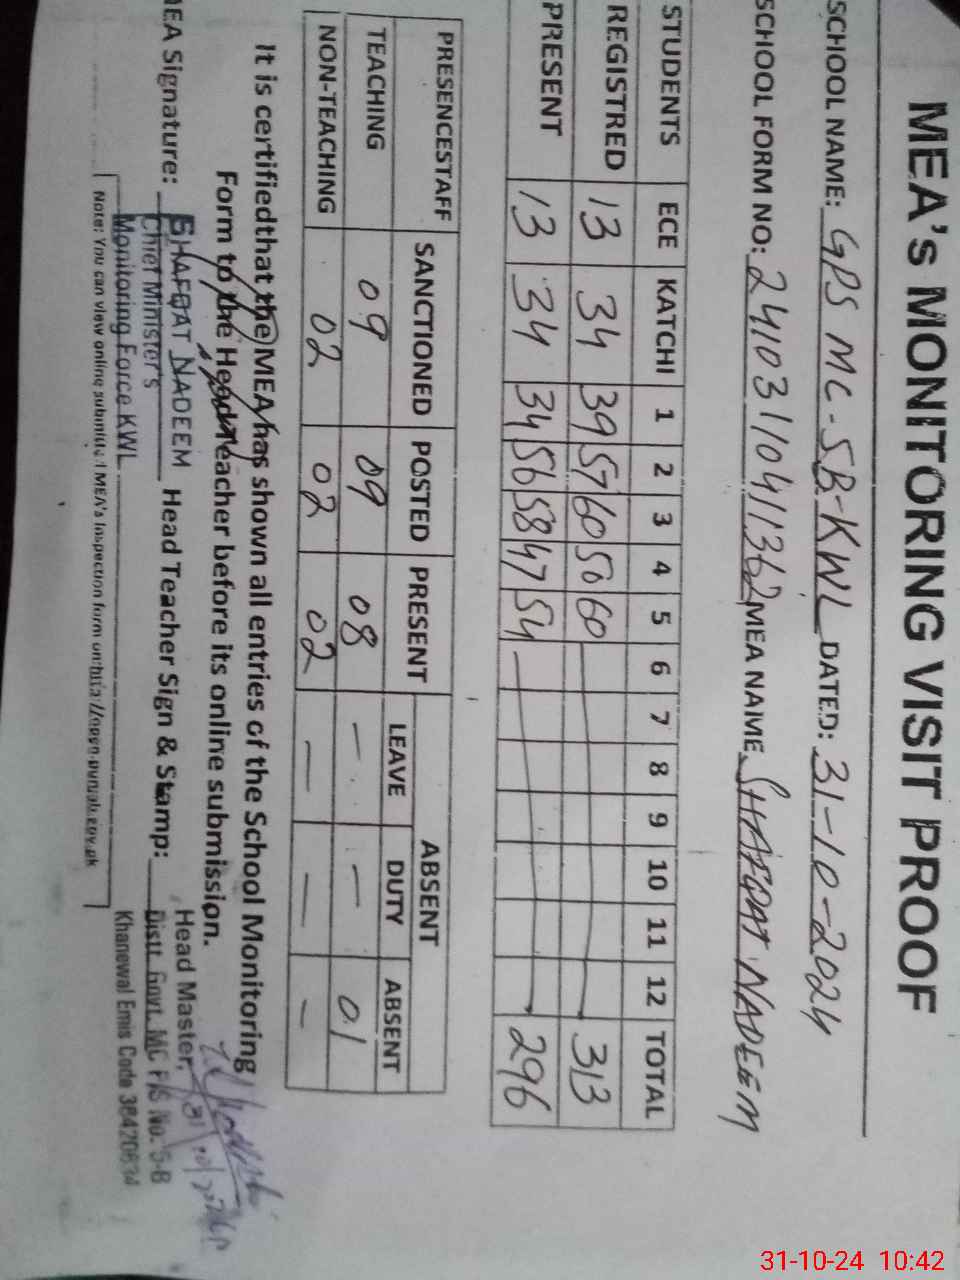 MEA's MONITORING VISIT PROOF
SCHOOL NAME: GPS MC-5B-KWL DATED: 31-10-2024
SCHOOL FORM NO: 24103110411362 MEA NAME SHAFQAT NADEEM
STUDENTS ECE KATCHI 1 2 3 4 5 6 7 8 9 10 11 12 TOTAL
REGISTRED 13 34 39 57 60 50 60 313
PRESENT 13 34 34 56 58 47 54 296
PRESENCESTAFF SANCTIONED POSTED PRESENT ABSENT
LEAVE DUTY ABSENT
TEACHING 09 09 08 — — 01
NON-TEACHING 02 02 02 — — —
It is certifiedthat the MEA has shown all entries of the School Monitoring
Form to the Head Teacher before its online submission.
MEA Signature: SHAFQAT NADEEM Head Teacher Sign & Stamp: Head Master,
Chief Minister's Distt. Govt. MC P/S No. 5-B
Monitoring Force KWL Khanewal Emis Code 38420634
Note: You can view online submitted MEA's Inspection form on:
31-10-24 10:42